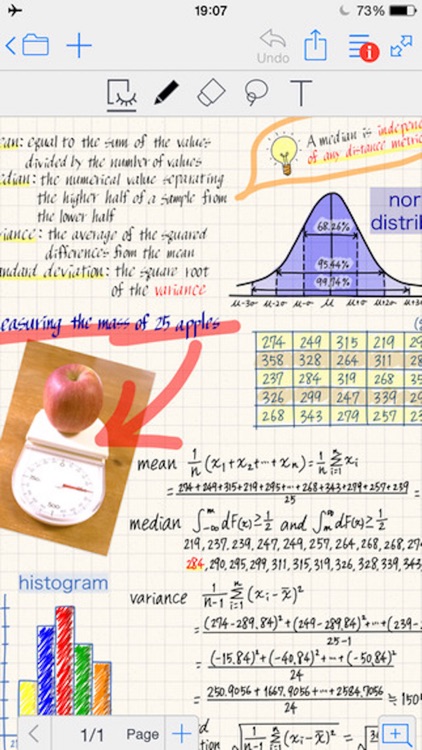 19:07
73%
Undo
T
ean: equal to the sum of the values
divided by the number of values
edian: the numerical value separating
the higher half of a sample from
the lower half
riance: the average of the squared
differences from the mean
andard deviation: the square root
of the variance
A median is indepen
of any distance metric
nor
distrib
68.26%
95.44%
99.74%
μ-3σ μ-2σ μ-σ μ μ+σ μ+2σ μ+3σ
easuring the mass of 25 apples
274 249 315 219 29
358 328 264 311 28
237 284 319 268 35
326 299 247 339 29
268 343 279 257 23
mean 1/n (x₁+x₂+…+xₙ)=1/n Σxᵢ
= 274+249+315+219+295+…+268+343+279+257+239 / 25 =
median ∫dF(x)≥1/2 and ∫dF(x)≥1/2
219, 237, 239, 247, 249, 257, 264, 268, 268, 274
284, 290, 295, 299, 311, 315, 319, 326, 328, 339, 343,
histogram
variance 1/n-1 Σ(xᵢ-x̄)²
= (274-289.84)²+(249-289.84)²+…+(239- / 25-1
= (-15.84)²+(-40.84)²+…+(-50.84)² / 24
= 250.9056+1667.9056+…+2584.7056 / 24 ≒ 150
1/1 Page
d
tion √1/n-1 Σ(xᵢ-x̄)² =